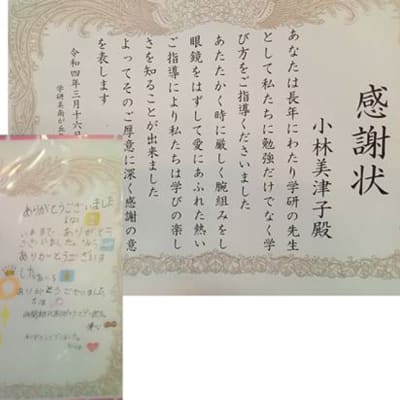 感謝状
小林美津子殿
あなたは長年にわたり学研の先生
として私たちに勉強だけでなく学
び方をご指導くださいました
あたたかく時に厳しく腕組みをし
眼鏡をはずして愛にあふれた熱い
ご指導により私たちは学びの楽し
さを知ることが出来ました
よってそのご厚意に深く感謝の意
を表します
令和四年三月十六日
学研美南が丘
ありがとうございました
いままで ありがとう
ございました。
ありがとうございま
した。
ありがとうございました